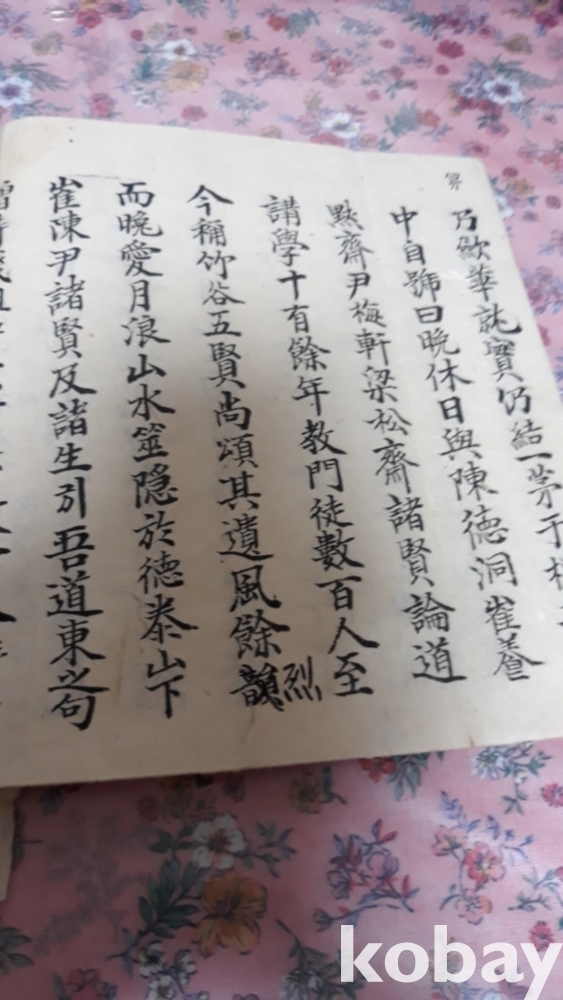 乃斂華就實仍結一茅于
中自號曰晩休日與陳德洞崔養
默齋尹梅軒梁松齋諸賢論道
講學十有餘年教門徒數百人至
今稱竹谷五賢尚頌其遺風餘韻烈
而晩愛月浪山水筮隱於德泰山下
崔陳尹諸賢及諸生引吾道東之句
kobay